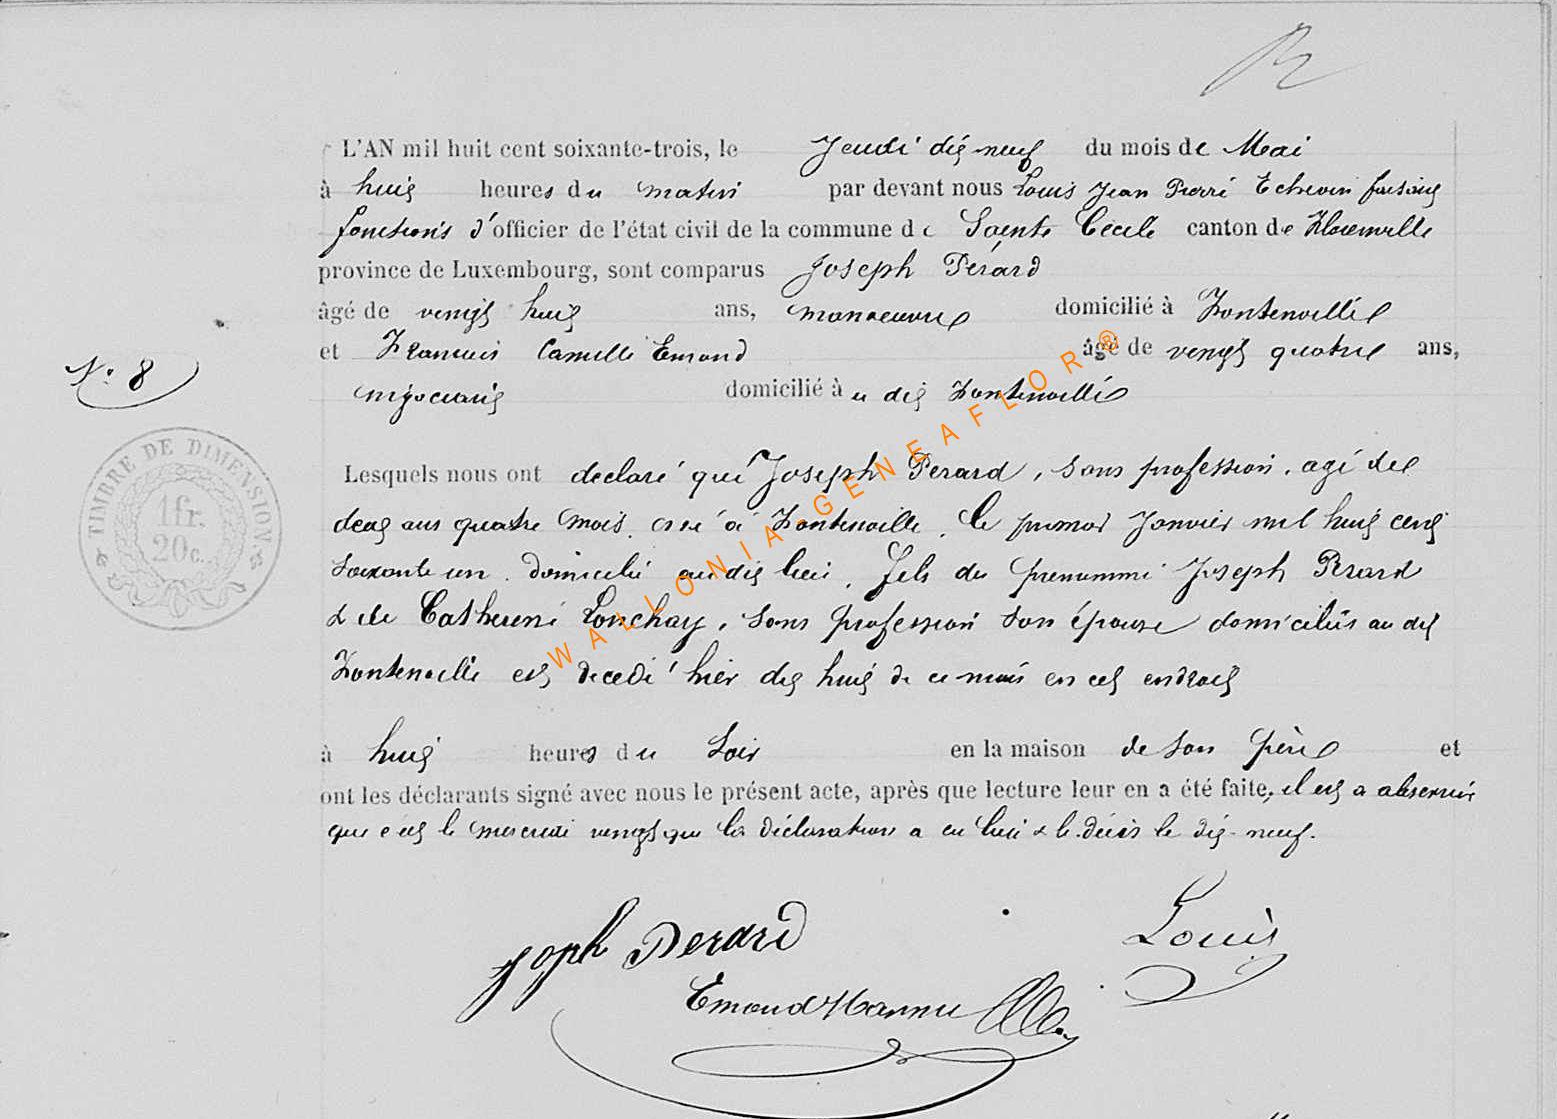 L'AN mil huit cent soixante-trois, le Jeudi dix neuf du mois de Mai
à huit heures du matin par devant nous Louis Jean Pierre Echevin faisant
fonctions d'officier de l'état civil de la commune de Sainte Cécile canton de Florenville
province de Luxembourg, sont comparus Joseph Pérard
âgé de vingt huit ans, manoeuvre domicilié à Fontenoille
et François Camille Emond âgé de vingt quatre ans,
N° 8
négociant domicilié à u dit Fontenoille
TIMBRE DE DIMENSION
1fr.
20c.
Lesquels nous ont declaré que Joseph Perard, sans profession, agé de
deux ans quatre mois, né à Fontenoille, le premier Janvier mil huit cent
soixante un, domicilié au dit lieu, fils du prenommé Joseph Perard
& de Catherine Lonchay, sans profession son épouse domiciliés au dit
Fontenoille est decedé hier dix huit de ce mois en cet endroit
à huit heures du soir en la maison de son père et
ont les déclarants signé avec nous le présent acte, après que lecture leur en a été faite, il est a observer
que c'est le mercredi vingt que la déclaration a eu lieu & le décès le dix-neuf.
Joseph Perard
Louis
Emond Hannu
WALLONIA-GENEAFLOR®